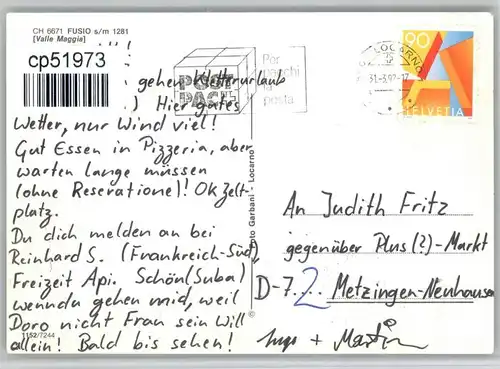 CH 6671 FUSIO s/m 1281
[Valle Maggia]
cp51973
gehen Kletterurlaub
) Hier gutes
Wetter, nur Wind viel!
Gut Essen in Pizzeria, aber
warten lange müssen
(ohne Reservatione)! Ok Zelt-
platz.
Du dich melden an bei
Reinhard S. (Frankreich-Süd,
Freizeit Api. Schön(Suba)
wenndu gehen mid, weil
Doro nicht Frau sein will
allein! Bald bis sehen!
1152/7244
Foto Garbani - Locarno
POST
PAC
Per
pacchi
la
posta
LOCARNO
31-3.97-17
90
HELVETIA
An Judith Fritz
gegenüber Plus(?)-Markt
D-72 Metzingen-Neuhausen
+ Martin